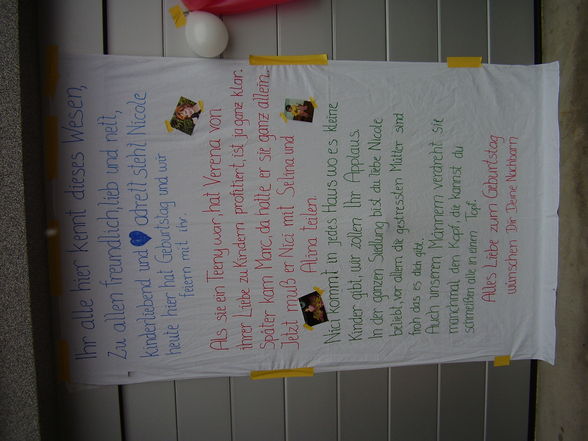 Ihr alle hier kennt dieses Wesen,
Zu allen freundlich, lieb und nett,
kinderliebend und adrett steht Nicole
heute hier hat Geburtstag und wir
feiern mit ihr.
Als sie ein Teeny war, hat Verena von
ihrer Liebe zu Kindern profitiert, ist ja ganz klar.
Später kam Marc, da hatte er sie ganz allein.
Jetzt muß er Nici mit Selina und
Alina teilen.
Nici kommt in jedes Haus wo es kleine
Kinder gibt wir zollen Ihr Applaus.
In der ganzen Siedlung bist du liebe Nicole
beliebt, vor allem die gestressten Mütter sind
froh das es dich gibt.
Auch unseren Männern verdreht sie
manchmal den Kopf, die kannst du
schmeißen alle in einen Topf.
Alles Liebe zum Geburtstag
wünschen Dir Deine Nachbarn